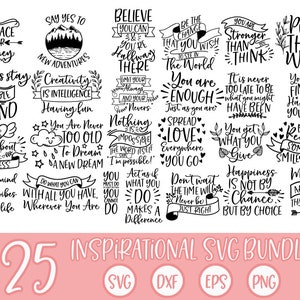 ACE
SAY YES TO
NEW ADVENTURES
BELIEVE
YOU CAN
& YOU'RE
Halfway
THERE
BE THE
CHANGE
THAT YOU WISH
TO SEE IN
The World
YOU ARE
Stronger
THAN YOU
THINK
stay
Creativity
IS INTELLIGENCE
Having fun
You are
ENOUGH
Just as you are
IT'S NEVER
TOO LATE TO BE
what you might
HAVE BEEN
You Are Never
TOO OLD
To Dream
A NEW DREAM
Nothing
IS
IMPOSSIBLE
THE WORD ITSELF
SAYS
I'm possible!
SPREAD
LOVE
EVERYWHERE
YOU GO
You get
WHAT YOU
Give
DO WHAT YOU CAN
WITH ALL YOU HAVE,
Wherever You Are
YOU
MUST
DO
THE THINGS
YOU THINK
YOU CANNOT
DO
Act as if
WHAT YOU
DO
MAKES A
Difference
Don't wait
THE TIME WILL
Never be
JUST RIGHT
HAPPINESS
IS NOT BY
Chance,
BUT BY CHOICE
25 INSPIRATIONAL SVG BUNDL
SVG DXF EPS PNG